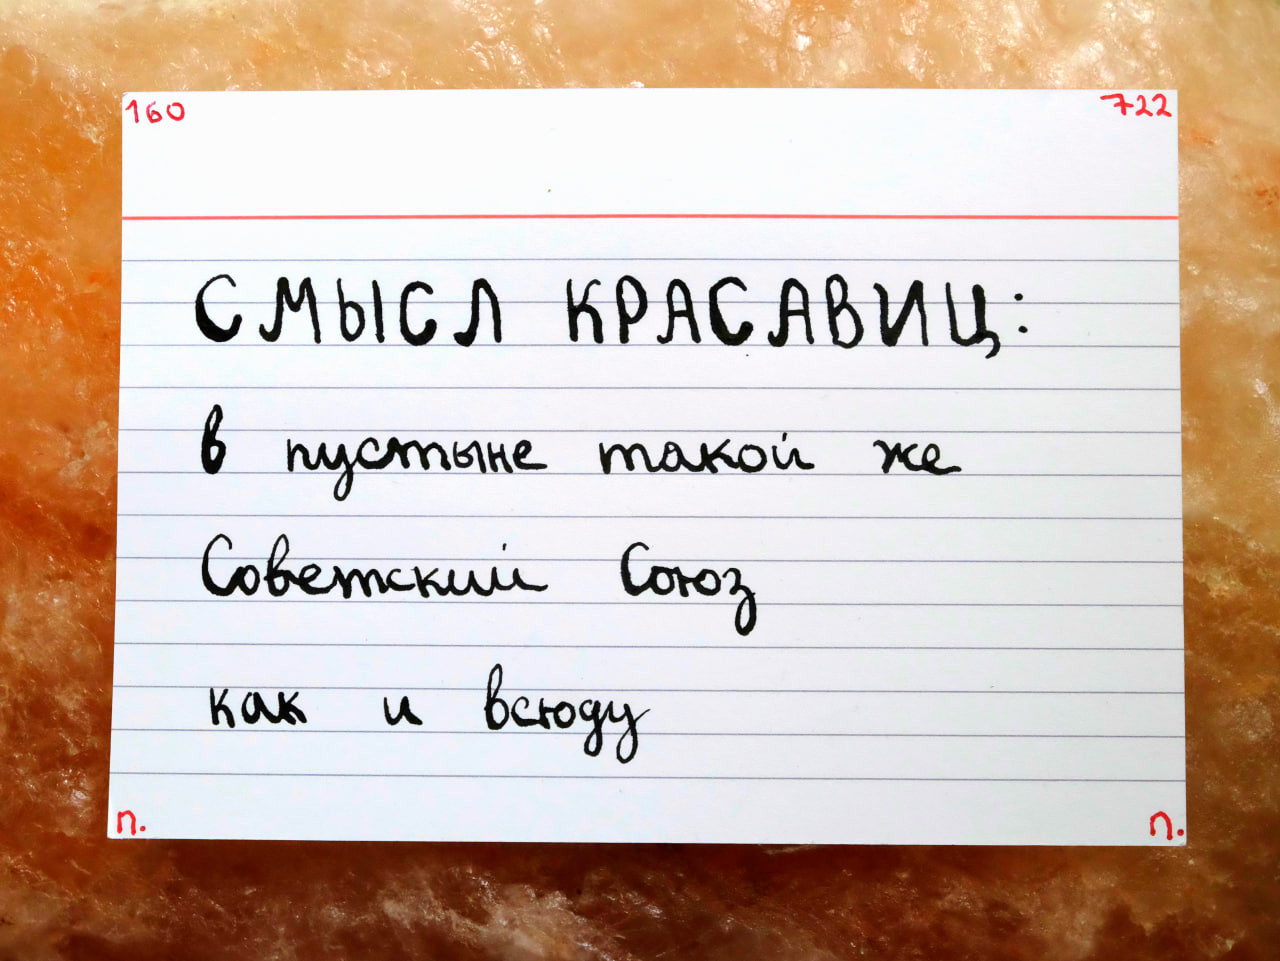 160 722
СМЫСЛ КРАСАВИЦ:
в пустыне такой же
Советский Союз
как и всюду
п. п.